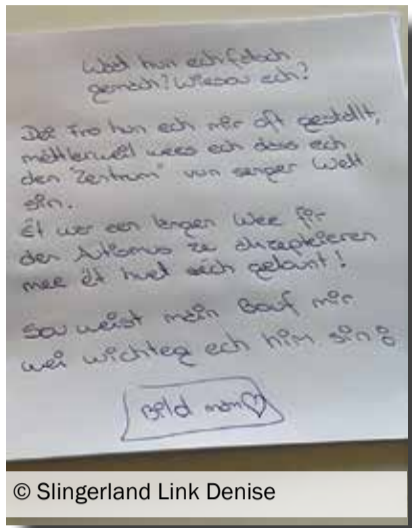 Wat hun ech falsch
gemach? Wiesou ech?
Déi Fro hun ech mir oft gestallt,
mëttlerweil wees ech dass ech
den "Zentrum" vun senger Welt
sin.
Ét wor een langen Wee fir
den Autismus ze akzeptéieren
mee ét huet sech gelount!
Sou weist mäin Bouf mir
wéi wichteg ech him sin:
Bild mam♡
© Slingerland Link Denise